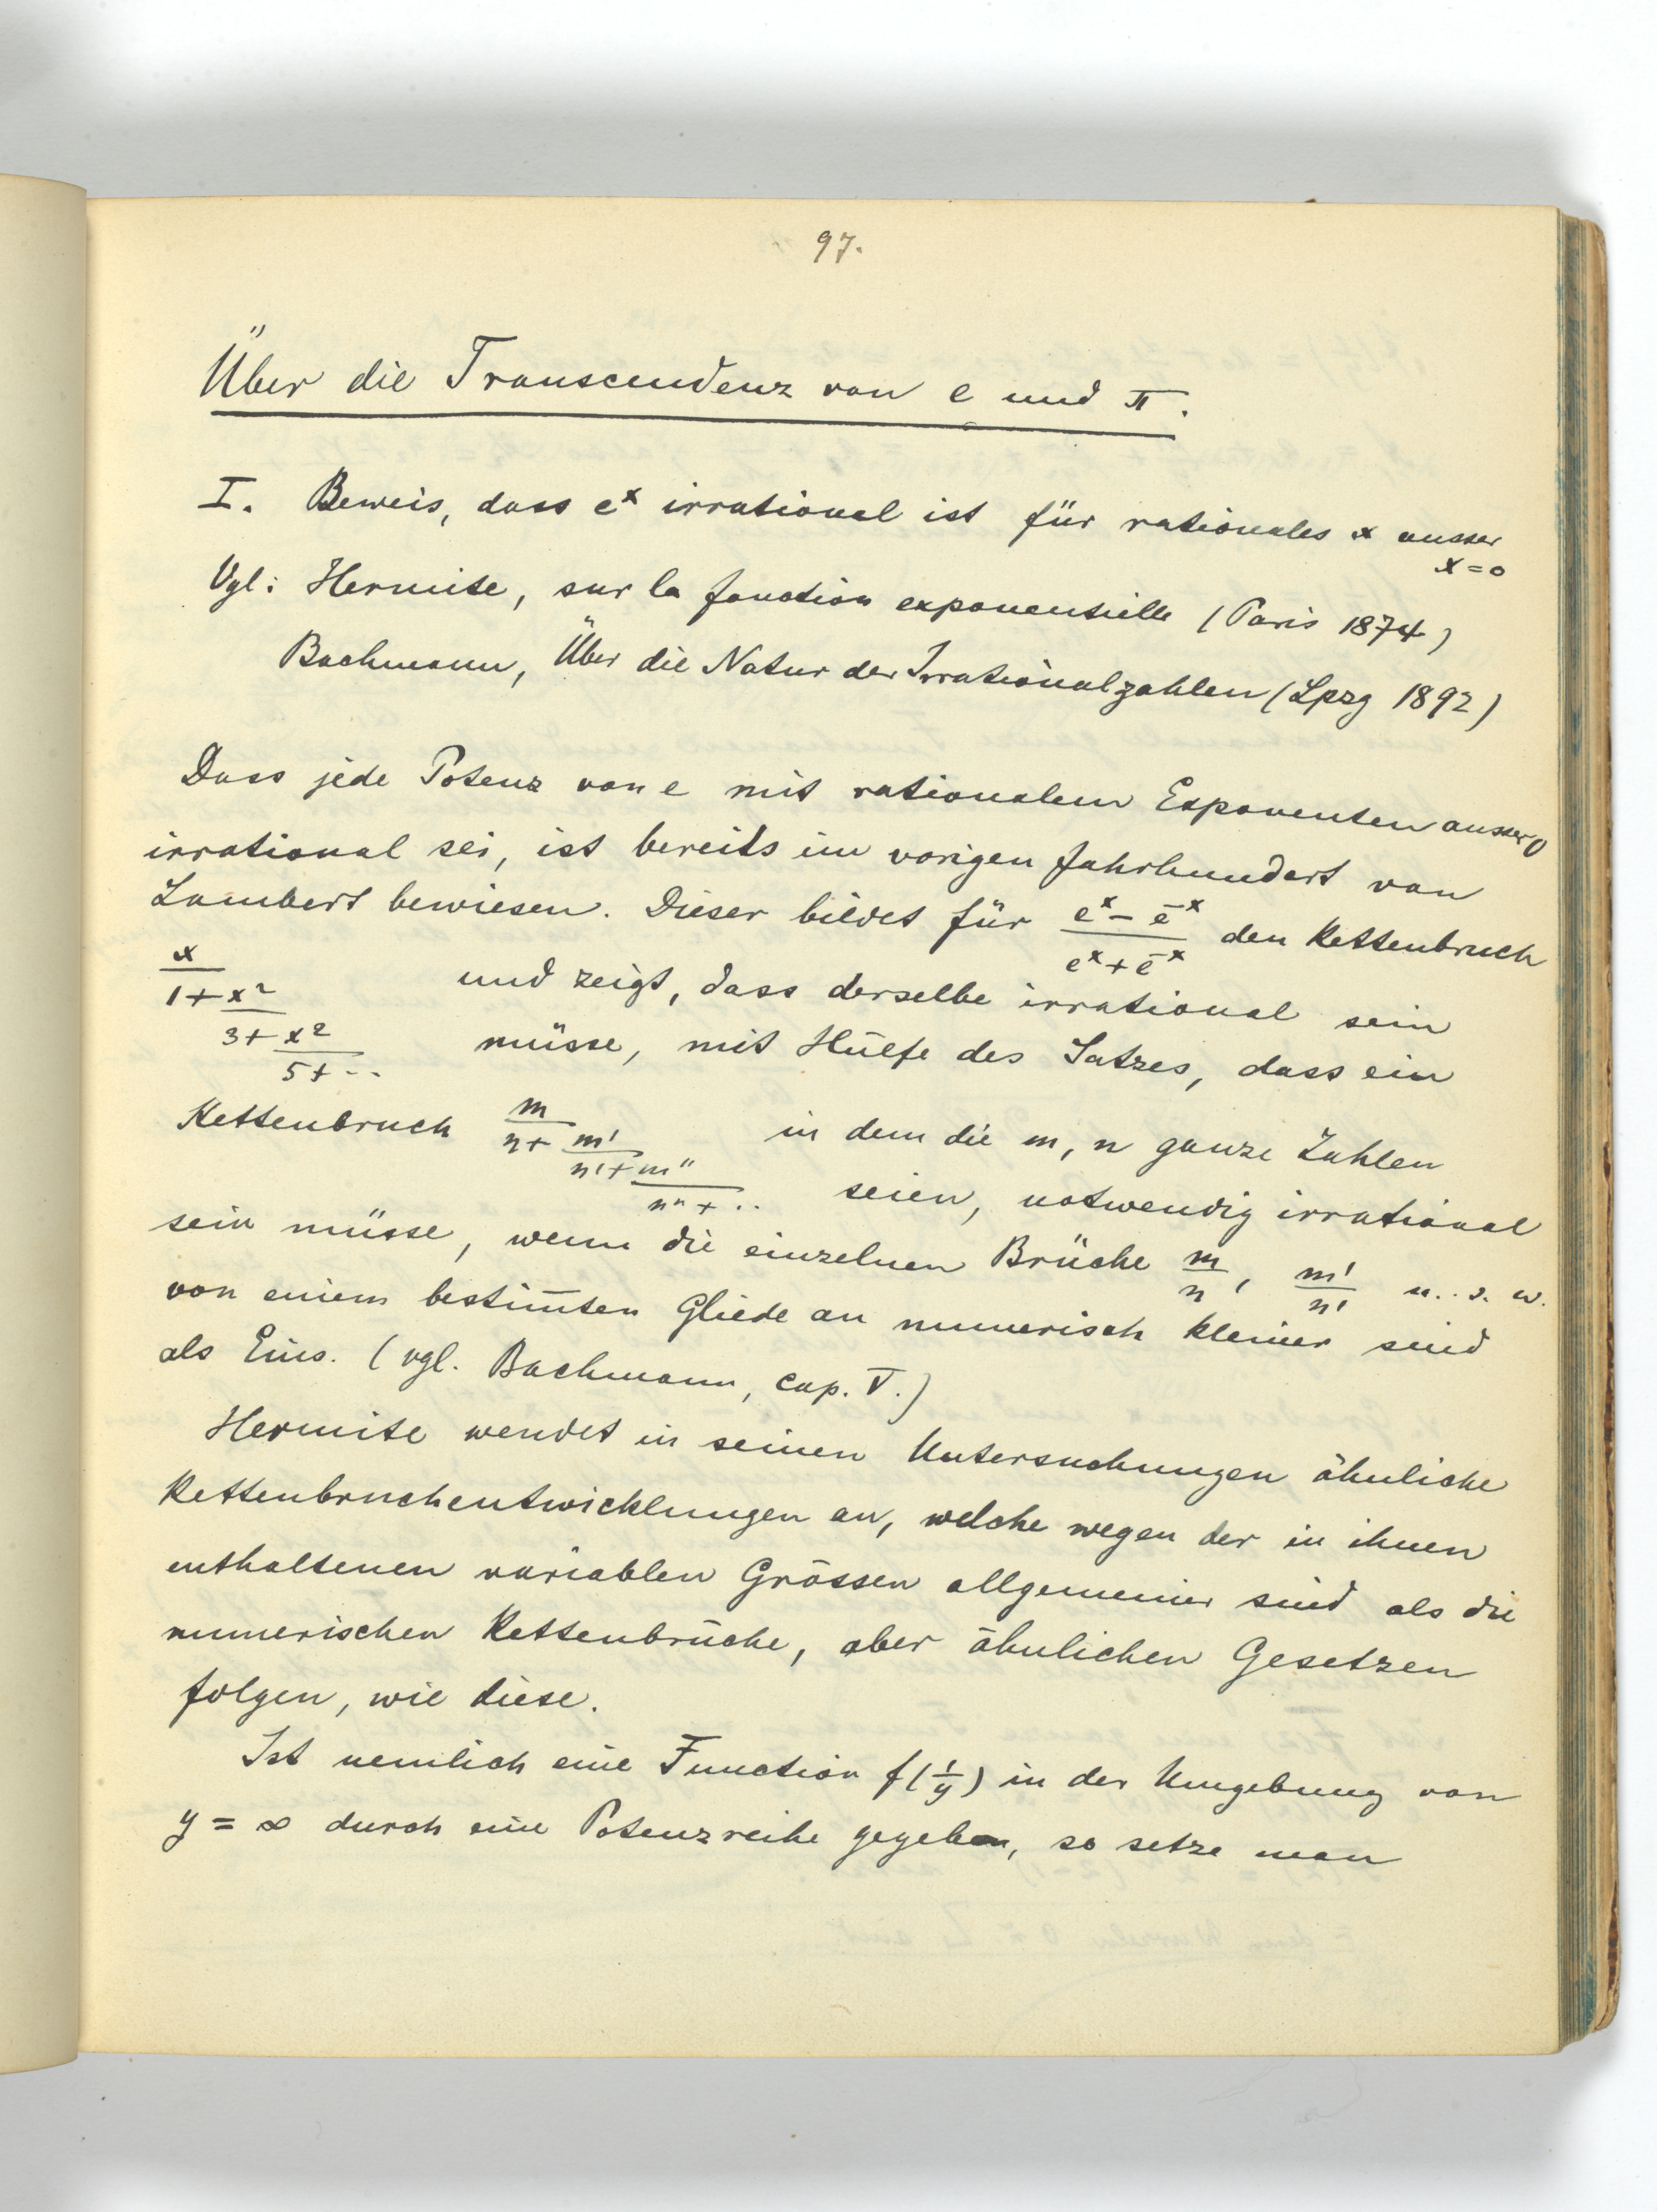 97.
Über die Transcendenz von e und π.
I. Beweis, dass e^x irrational ist für rationales x ausser
x=0
Vgl: Hermite, sur la fonction exponentielle (Paris 1874)
Bachmann, Über die Natur der Irrationalzahlen (Lpzg 1892)
Dass jede Potenz von e mit rationalem Exponenten ausser 0
irrational sei, ist bereits im vorigen Jahrhundert von
Lambert bewiesen. Dieser bildet für (e^x - e^-x)/(e^x + e^-x) den Kettenbruch
x/(1+x²/(3+x²/(5+..))) und zeigt, dass derselbe irrational sein
müsse, mit Hülfe des Satzes, dass ein
Kettenbruch m/(n+m'/(n'+m''/(n''+..))) in dem die m, n ganze Zahlen
seien, notwendig irrational
sein müsse, wenn die einzelnen Brüche m/n, m'/n' u. s. w.
von einem bestim̅ten Gliede an numerisch kleiner sind
als Eins. (vgl. Bachmann, cap. V.)
Hermite wendet in seinen Untersuchungen ähnliche
Kettenbruchentwicklungen an, welche wegen der in ihnen
enthaltenen variablen Grössen allgemeiner sind als die
numerischen Kettenbrüche, aber ähnlichen Gesetzen
folgen, wie diese.
Ist nemlich eine Function f(1/y) in der Umgebung von
y = ∞ durch eine Potenzreihe gegeben, so setze man